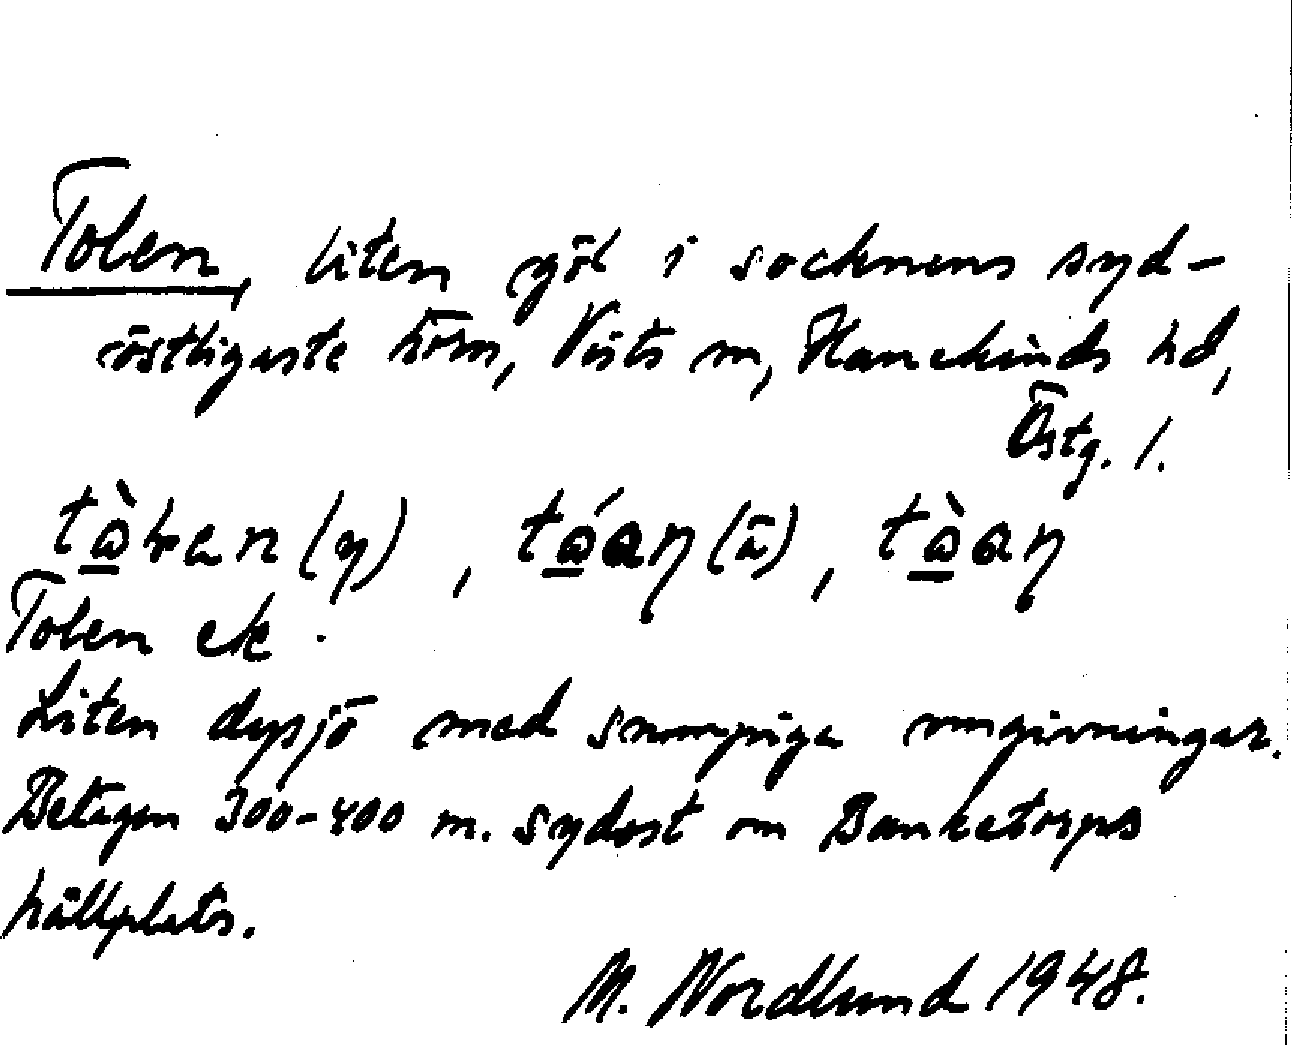 Tolen, liten göl i socknens syd-
östligaste hörn, Vists sn, Hanekinds hd,
Östg. l.
(y) , (ā) ,
Tolen ek.
Liten dysjö med sumpiga omgivningar.
Belägen 300-400 m. sydost om Bankeforps
hållplats.
M. Nordlund 1948.